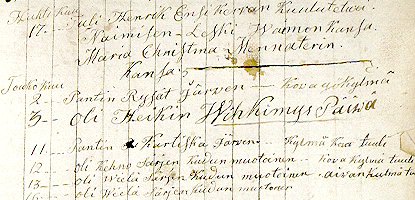 Huhti Kuu
17. Tuli Henrik Ensikerran Kuuluteluxi
Naimisen Leski Waimon Kansa
Maria Christina Mennaterin
Kansa
Touko Kuu
2 Pantin Rysät Järven Kova ja Kylmä
3 Oli Heikin Wihkimys Päiwä
11 Pantin Kartiska Järven Kylmä Kova tuuli
12 Oli Kehno Särjen Kudun muotoinen Kova Kylmä tuuli
13 Oli Wielä Särjen Kudun muotoinen aivan kulmä tu
15 Oli Wielä Särjen Kudun muotonen